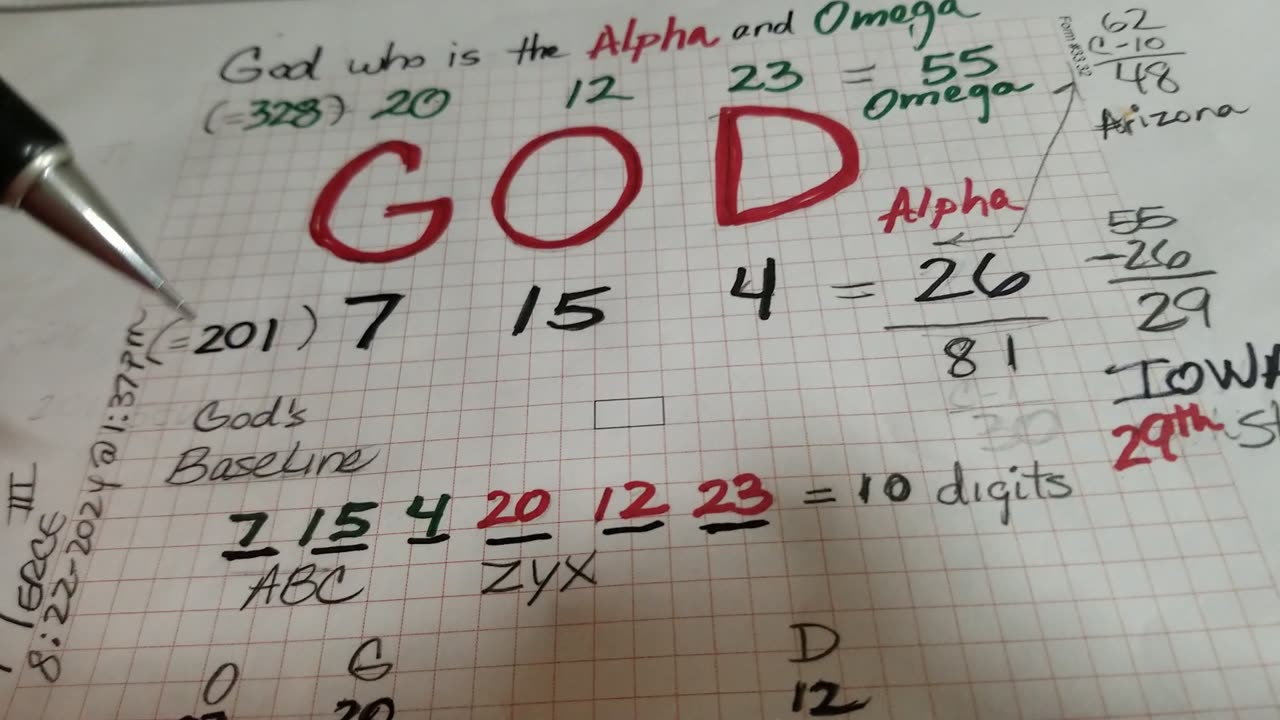 God who is the Alpha and Omega
(=328) 20 12 23 = 55
Omega
G O D
Alpha
(=201) 7 15 4 = 26
81
God's
Baseline
7 15 4 20 12 23 = 10 digits
ABC ZYX
O G D
20 12
Form #3332
62
C-10
48
Arizona
55
-26
29
IOWA
29th St
III
8:22-2024@1:37pm